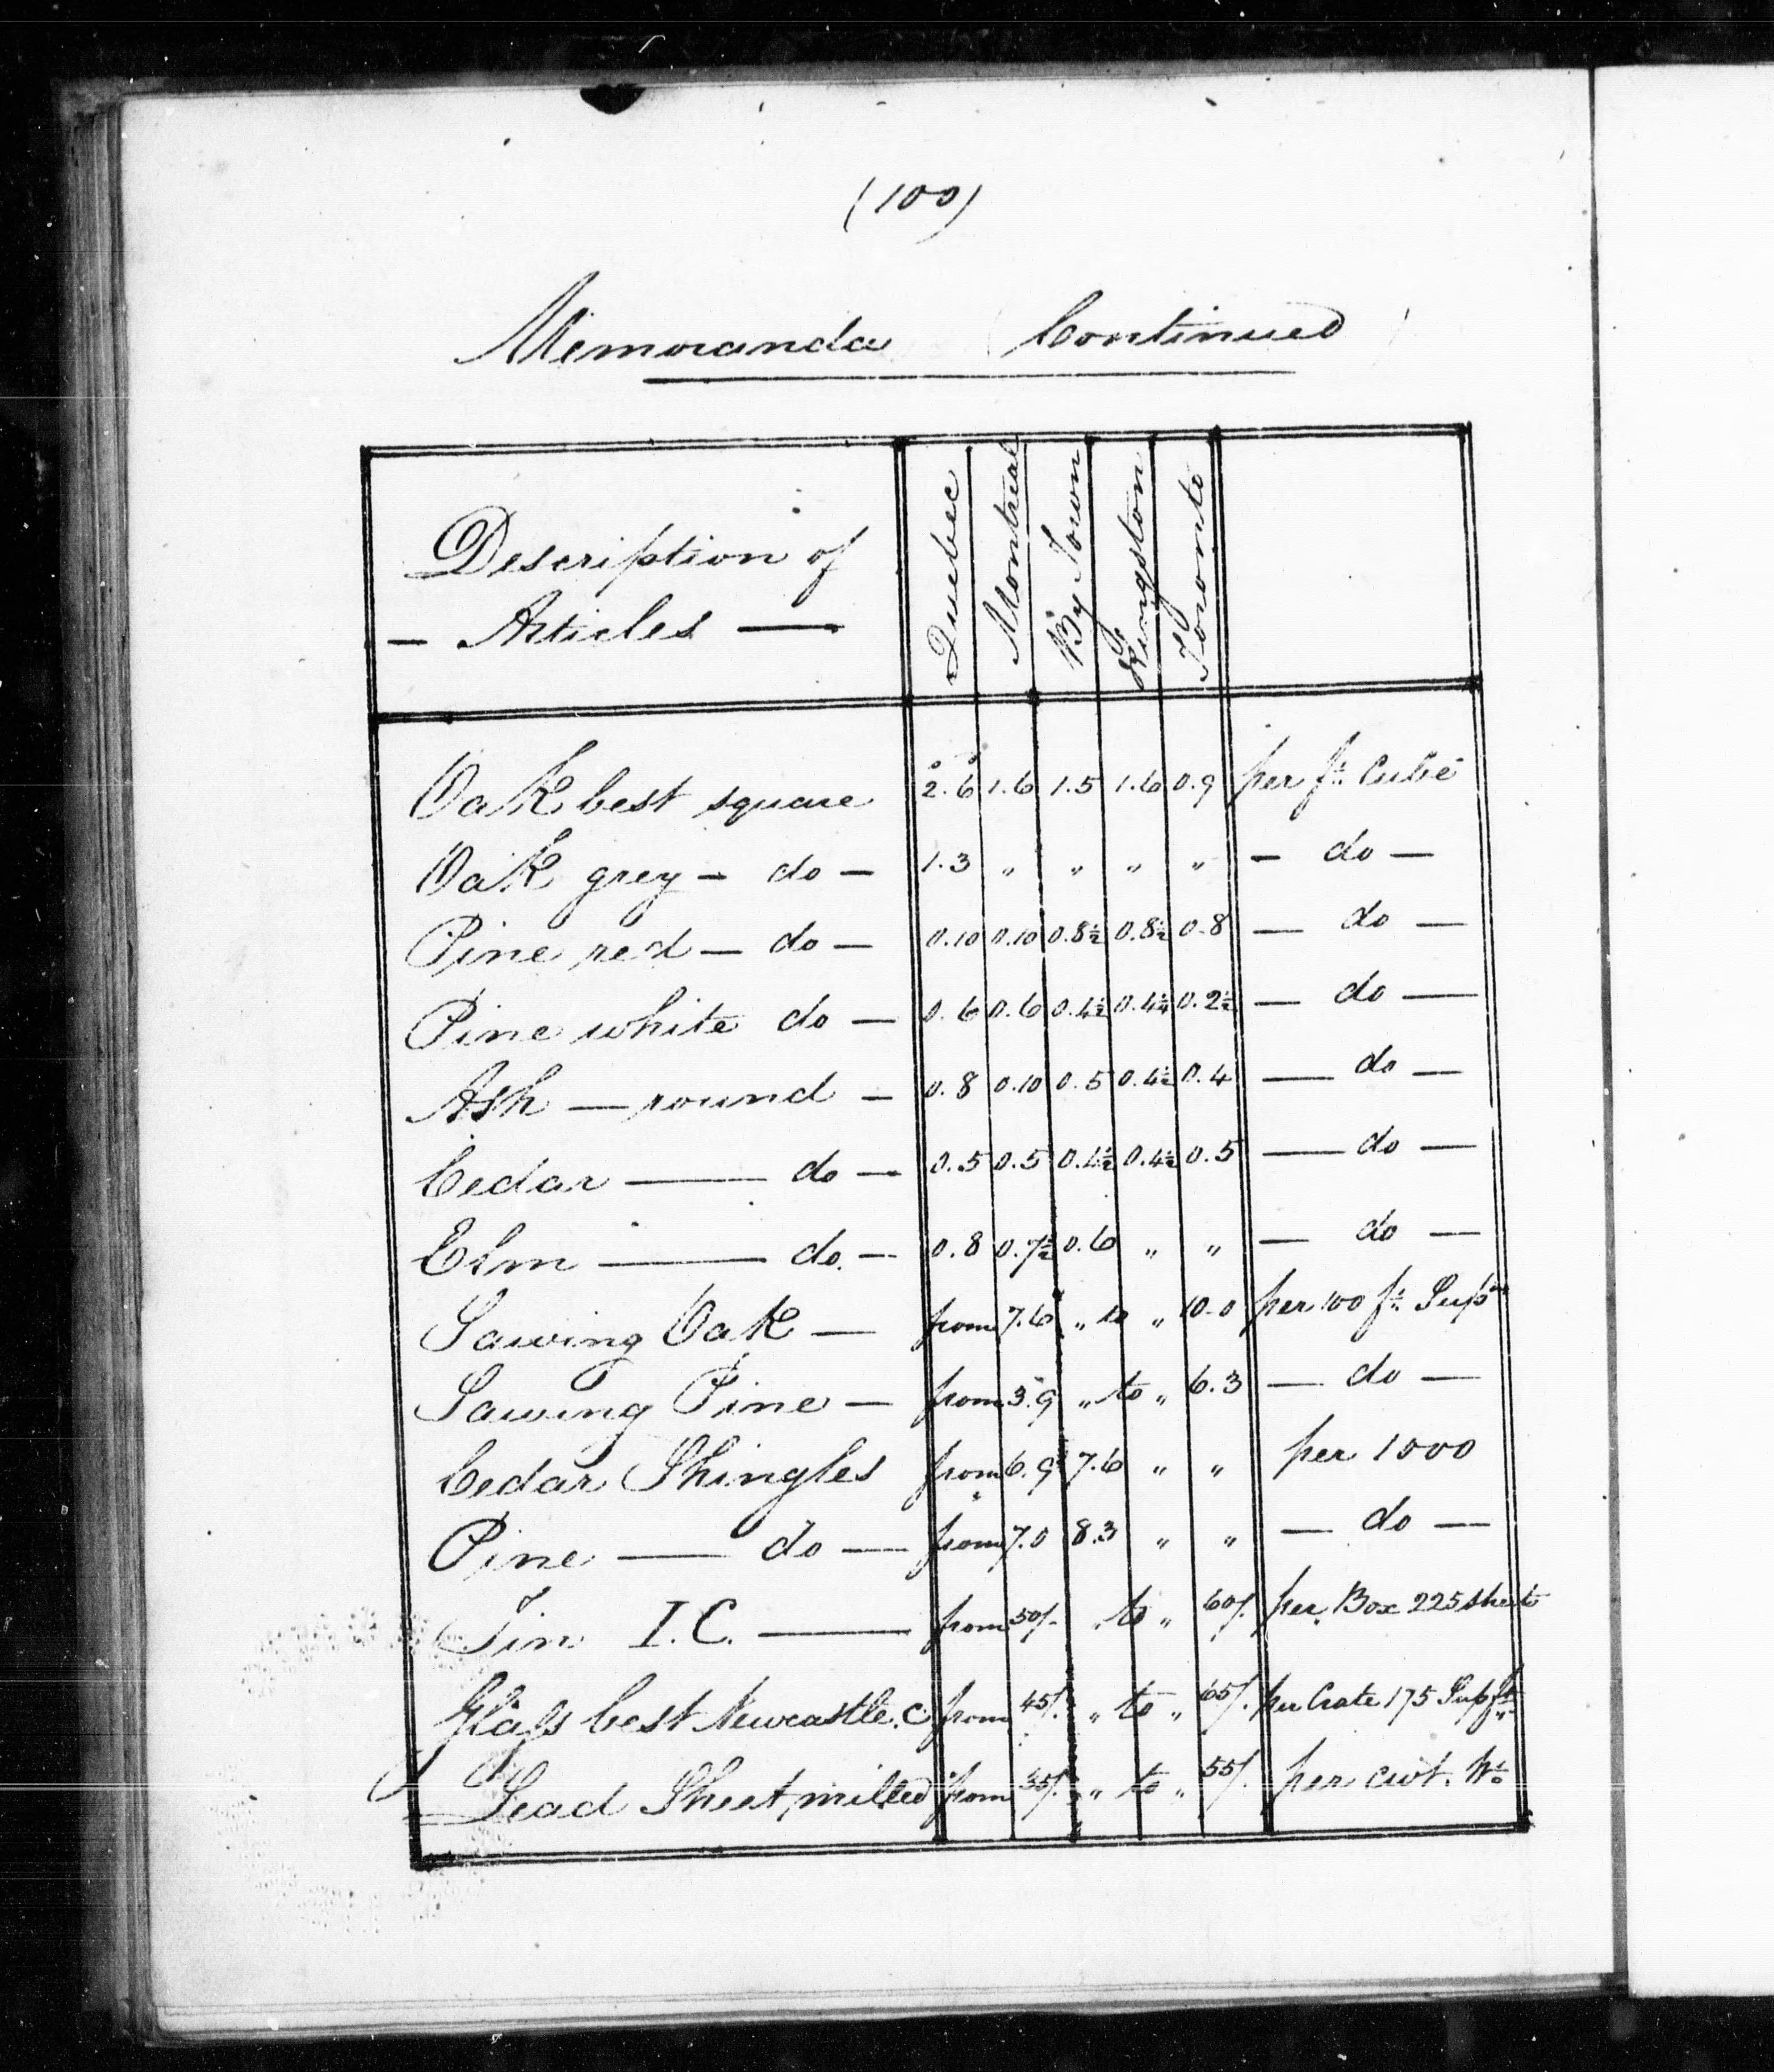 (100)
Memoranda Continued
Description of
— Articles —
Quebec Montreal By Town Kingston Toronto
Oak best square 2.6 1.6 1.5 1.6 0.9 per ft. Cube
Oak grey — do — 1.3 " " " " — do —
Pine red — do — 0.10 0.10 0.8½ 0.8½ 0.8 — do —
Pine white do — 0.6 0.6 0.4½ 0.4¼ 0.2½ — do —
Ash — round — 0.8 0.10 0.5 0.4½ 0.4 — do —
Cedar — do — 0.5 0.5 0.4½ 0.4½ 0.5 — do —
Elm — do. — 0.8 0.7½ 0.6 " " — do —
Sawing Oak — from 7.6 " to " 10.0 per 100 ft. Supl
Sawing Pine — from 3.9 " to " 6.3 — do —
Cedar Shingles from 6.9 7.6 " " per 1000
Pine — do — from 7.0 8.3 " " — do —
Tin I.C. — from 50/- to " 60/. per Box 225 sheets
Glass best Newcastle. C from 45/. " to " 65/. per Crate 175 Sup ft.
Lead Sheet, milled from 35/. " to " 55/. per cwt. Wt.